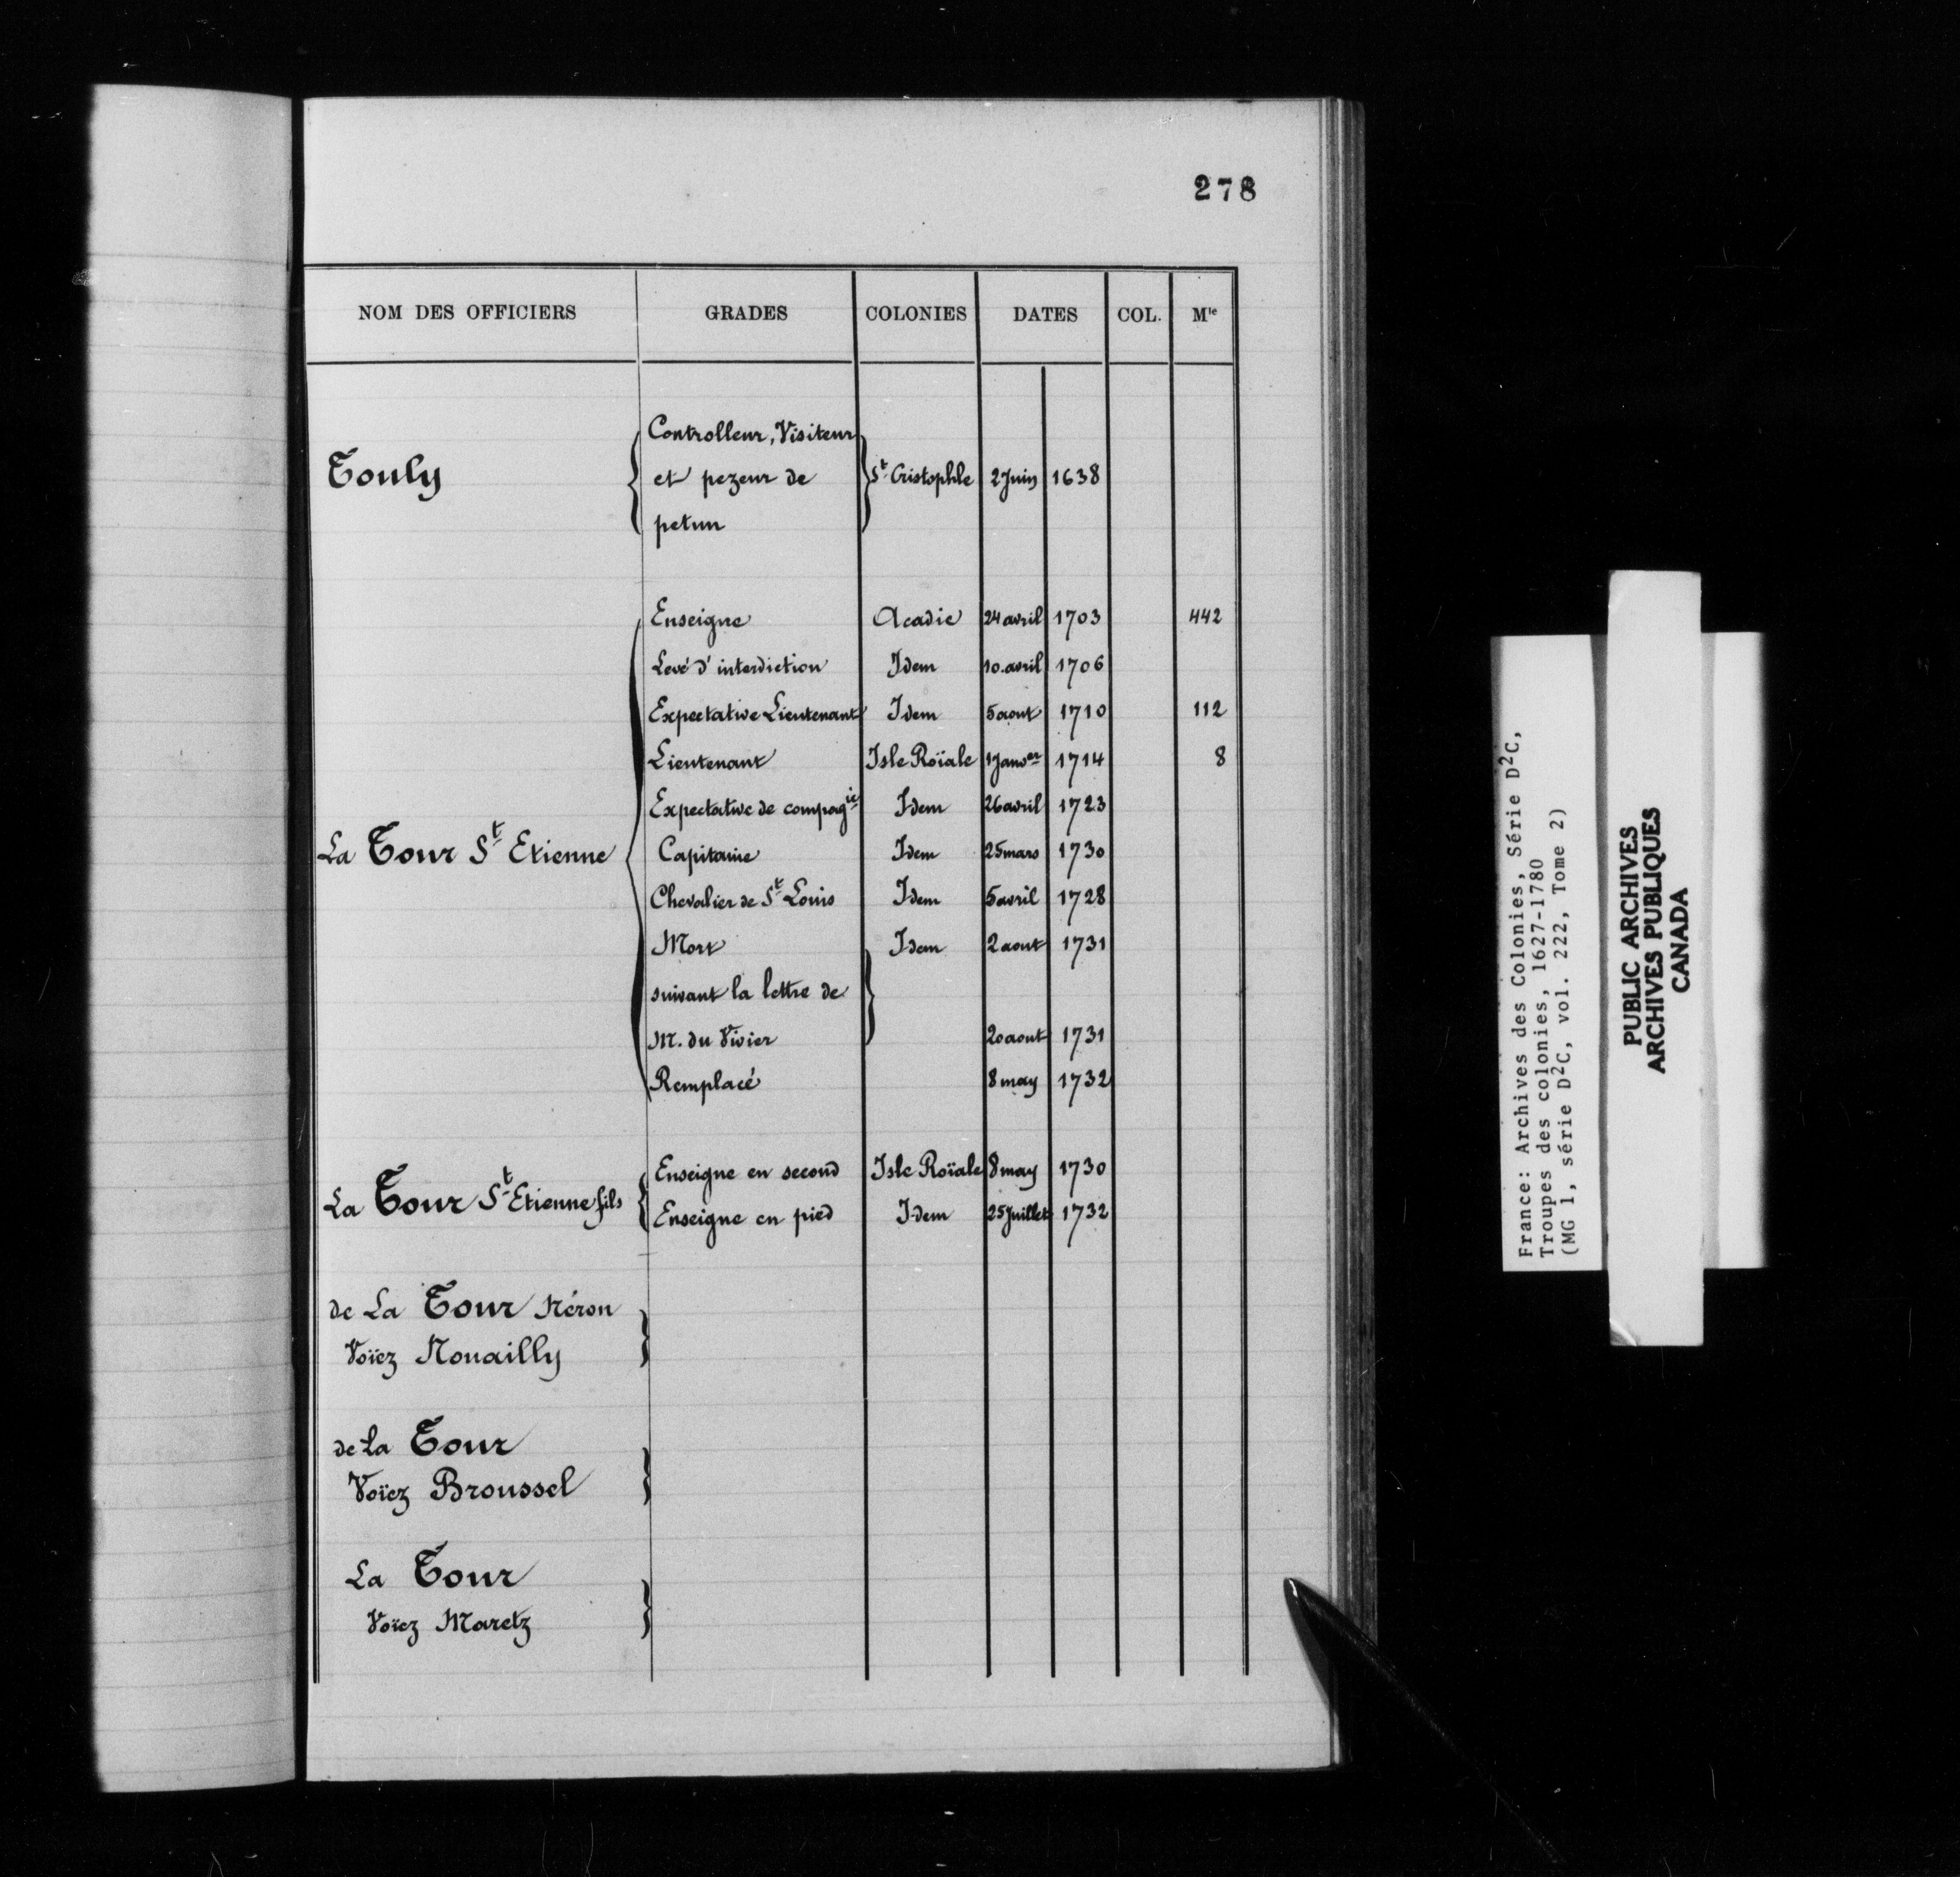 278
NOM DES OFFICIERS GRADES COLONIES DATES COL. Mle
Controlleur, Visiteur
Touly et pezeur de St Cristophle 2 Juin 1638
petun
Enseigne Acadie 24 avril 1703 442
Levé d'interdiction Idem 10. avril 1706
Expectative Lieutenant Idem 5 aout 1710 112
Lieutenant Isle Roïale 1 Janver 1714 8
Expectative de compagie Idem 26 avril 1723
La Tour St Etienne Capitaine Idem 25 mars 1730
Chevalier de St Louis Idem 5 avril 1728
Mort Idem 2 aout 1731
suivant la lettre de
M. du Vivier 20 aout 1731
Remplacé 8 may 1732
Enseigne en second Isle Roïale 8 may 1730
La Tour St Etienne fils Enseigne en pied Idem 25 Juillet 1732
de La Tour Néron
Voïez Nouailly
de La Tour
Voïez Broussel
La Tour
Voïez Maretz
France: Archives des Colonies, Série D2C,
Troupes des colonies, 1627-1780
(MG 1, série D2C, vol. 222, Tome 2)
PUBLIC ARCHIVES
ARCHIVES PUBLIQUES
CANADA